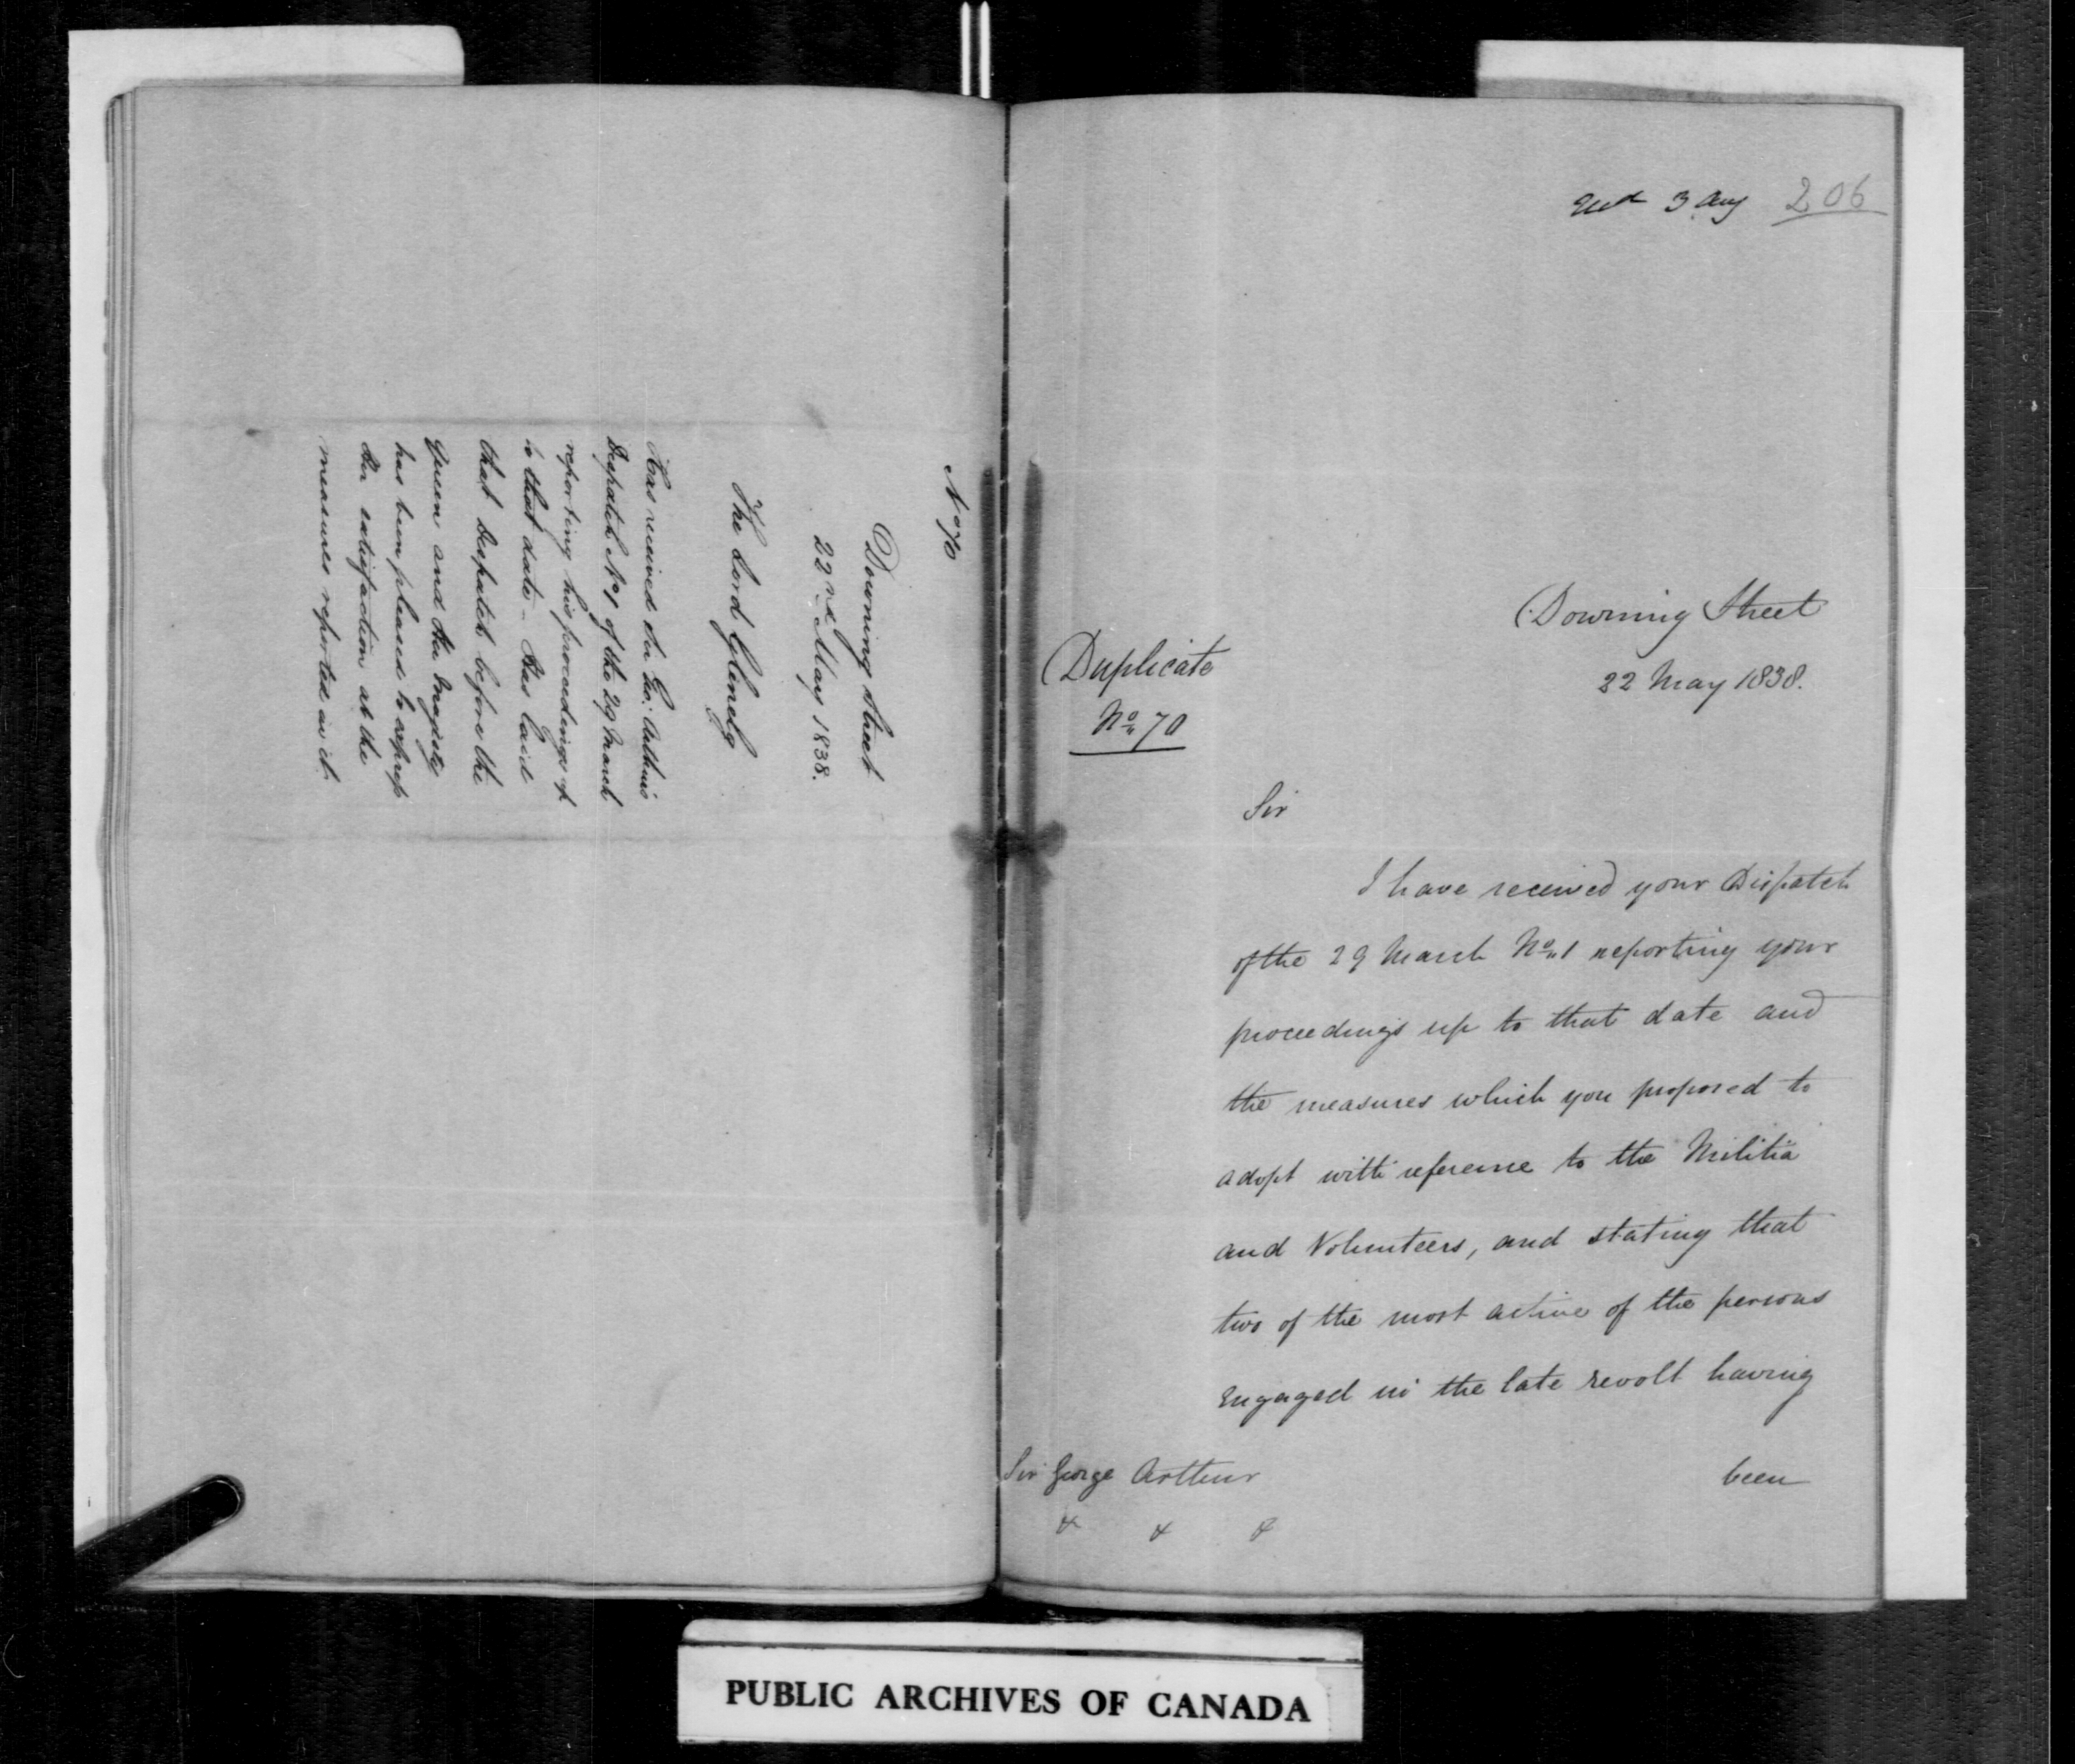 No 70
Downing Street
22nd May 1838.
The Lord Glenelg
Has received Sir Geo: Arthur's
Despatch No 1 of the 29 March
reporting his proceedings up
to that date - Has laid
that Despatch before the
Queen and Her Majesty
has been pleased to express
Her satisfaction at the
measures reported in it.
3 Aug 206
Downing Street
22 May 1838.
Duplicate
No. 70
Sir
I have received your Dispatch
of the 29 March No. 1 reporting your
proceedings up to that date and
the measures which you proposed to
adopt with reference to the Militia
and Volunteers, and stating that
two of the most active of the persons
Engaged in the late revolt having
been
Sir George Arthur
& & &
PUBLIC ARCHIVES OF CANADA